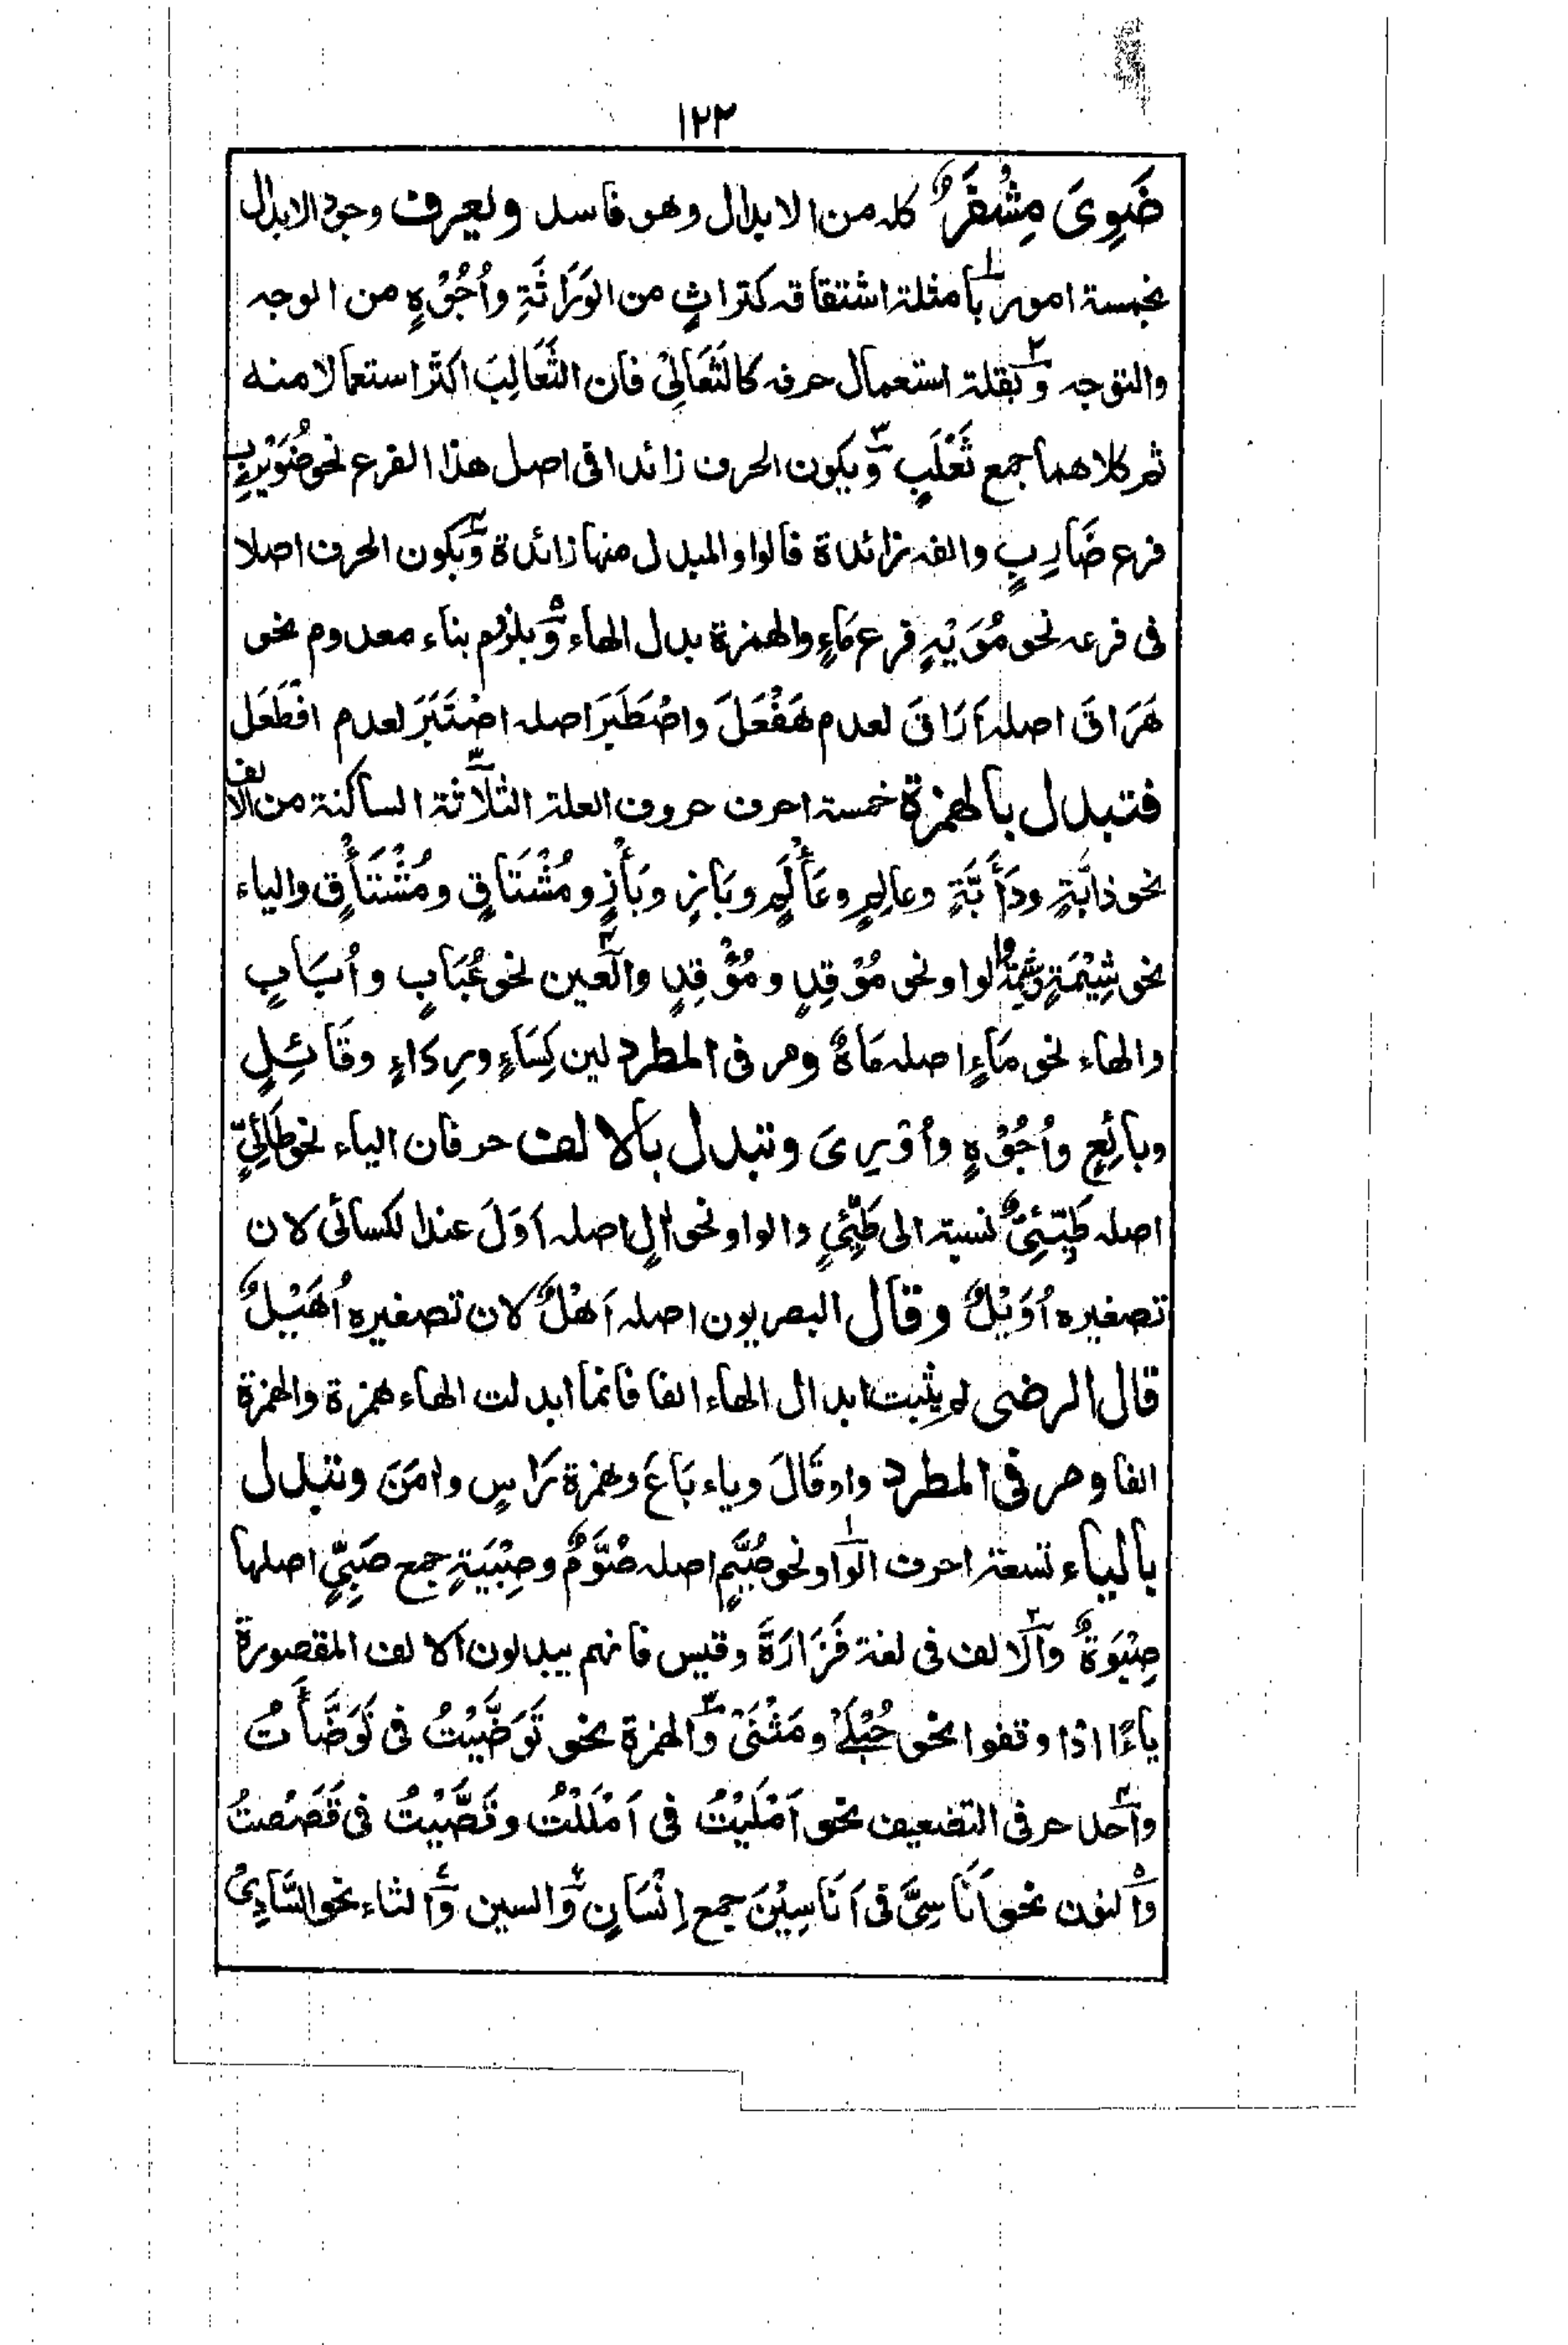 ١٢٣
ضَوِىَ مِشْفَرٌ كله من الابدال وهو فاسد ويعرف وجوه الابدال
بخمسة امور ١ بامثلة اشتقاقه كتراثٍ من الوَرَاثَةِ وأُجُوْهٍ من الوجه
والتوجه ٢ وبقلة استعمال حرفه كالثَّعَالِىْ فان الثَّعَالِبَ اكثر استعمالا منه
ثم كلاهما جمع ثَعْلَبٍ ٣ وبكون الحرف زائدا فى اصل هذا الفرع نحو ضُوَيْرِبٍ
فرع ضَارِبٍ والفه زائدة فالواو المبدل منها زائدة ٤ وبكون الحرف اصلا
فى فرعه نحو مُوَيْهٍ فرع مَاءٍ والهمزة بدل الهاء ٥ وبلزوم بناء معدوم نحو
هَرَاقَ اصله اَرَاقَ لعدم هَفْعَلَ واصْطَبَرَ اصله اصْتَبَرَ لعدم افْطَعَل
فتبدل بالهمزة خمسة احرف حروف العلة الثلاثة الساكنة من الالف
نحو دَابَّةٍ ودَأَبَّةٍ وعالِمٍ وعَأْلَمٍ وبَازٍ وبَأْزٍ ومُشْتَاقٍ ومُشْتَأْقٍ والياء
نحو شِيْمَةٍ وشِئْمَةٍ والواو نحو مُوْقِدٍ ومُؤْقِدٍ ٢ والعين نحو عُبَابٍ وأُبَابٍ
والهاء نحو مَاءٍ اصله مَاهٌ ومر فى المطرد لين كِسَاءٍ ورِدَاءٍ وقَائِلٍ
وبائِعٍ وأُجُوْهٍ وأُوْرِىَ وتبدل بالالف حرفان الياء نحو طَائِىٍّ
اصله طَيِّئِىٌّ نسبة الى طَيِّئٍ والواو نحو اٰلٍ اصله اَوَلَ عند الكسائى لان
تصغيره أُوَيْلٌ وقال البصريون اصله اَهْلٌ لان تصغيره أُهَيْلٌ
قال الرضى لم يثبت ابدال الهاء الفا فانما ابدلت الهاء همزة والهمزة
الفا ومر فى المطرد واو قَالَ وياء بَاعَ وهمزة رَاسٍ وامَنَ وتبدل
بالياء تسعة احرف ١ الواو نحو صُيَّمٍ اصله صُوَّمٌ وصِبْيَةٍ جمع صَبِىٍّ اصلها
صِبْوَةٌ ٢ والالف فى لغة فَزَارَةَ وقيس فانهم يبدلون الالف المقصورة
ياءً اذا وقفوا نحو حُبْلَىْ ومَثْنَىْ ٣ والهمزة نحو تَوَضَّيْتُ فى تَوَضَّأْتُ
٤ واحد حرفى التضعيف نحو اَمْلَيْتُ فى اَمْلَلْتُ وقَصَّيْتُ فى قَصَصْتُ
٥ والنون نحو اَنَاسِىَّ فى اَنَاسِيْنَ جمع اِنْسَانٍ ٦ والسين ٧ والثاء نحو السَّادِىْ